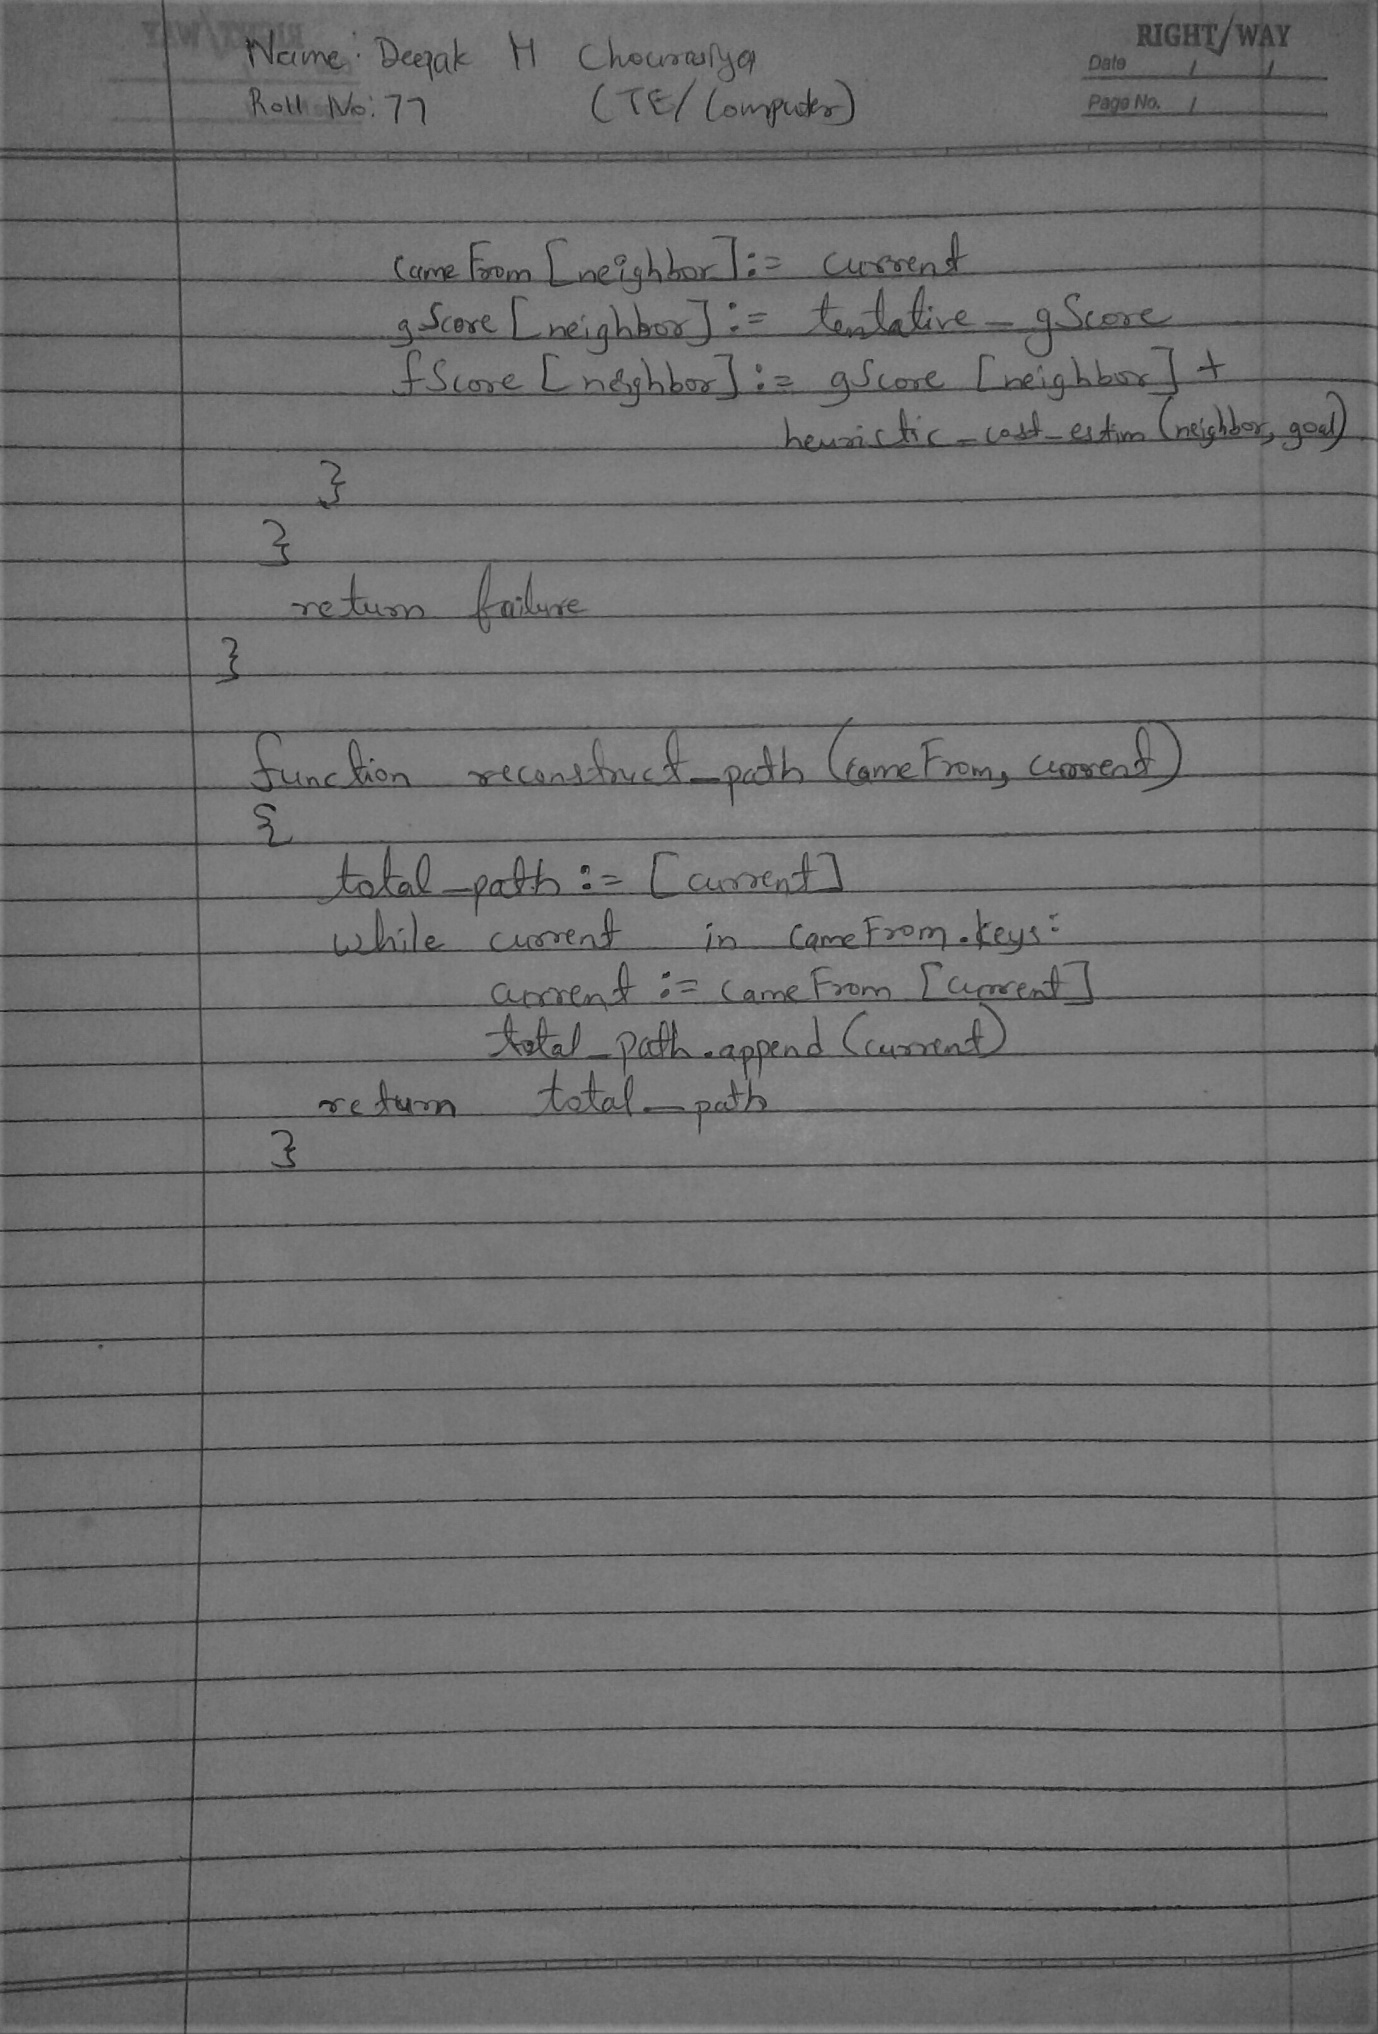 RIGHT/WAY
Name: Deepak H Chourasiya
Date / /
Roll No: 77 (TE/Computer)
Page No. /
cameFrom [neighbor] := current
gScore [neighbor] := tentative_gScore
fScore [neighbor] := gScore [neighbor] +
heuristic_cost_estim (neighbor, goal)
}
}
return failure
}
function reconstruct_path (cameFrom, current)
{
total_path := [current]
while current in cameFrom.keys:
current := cameFrom [current]
total_path.append (current)
return total_path
}